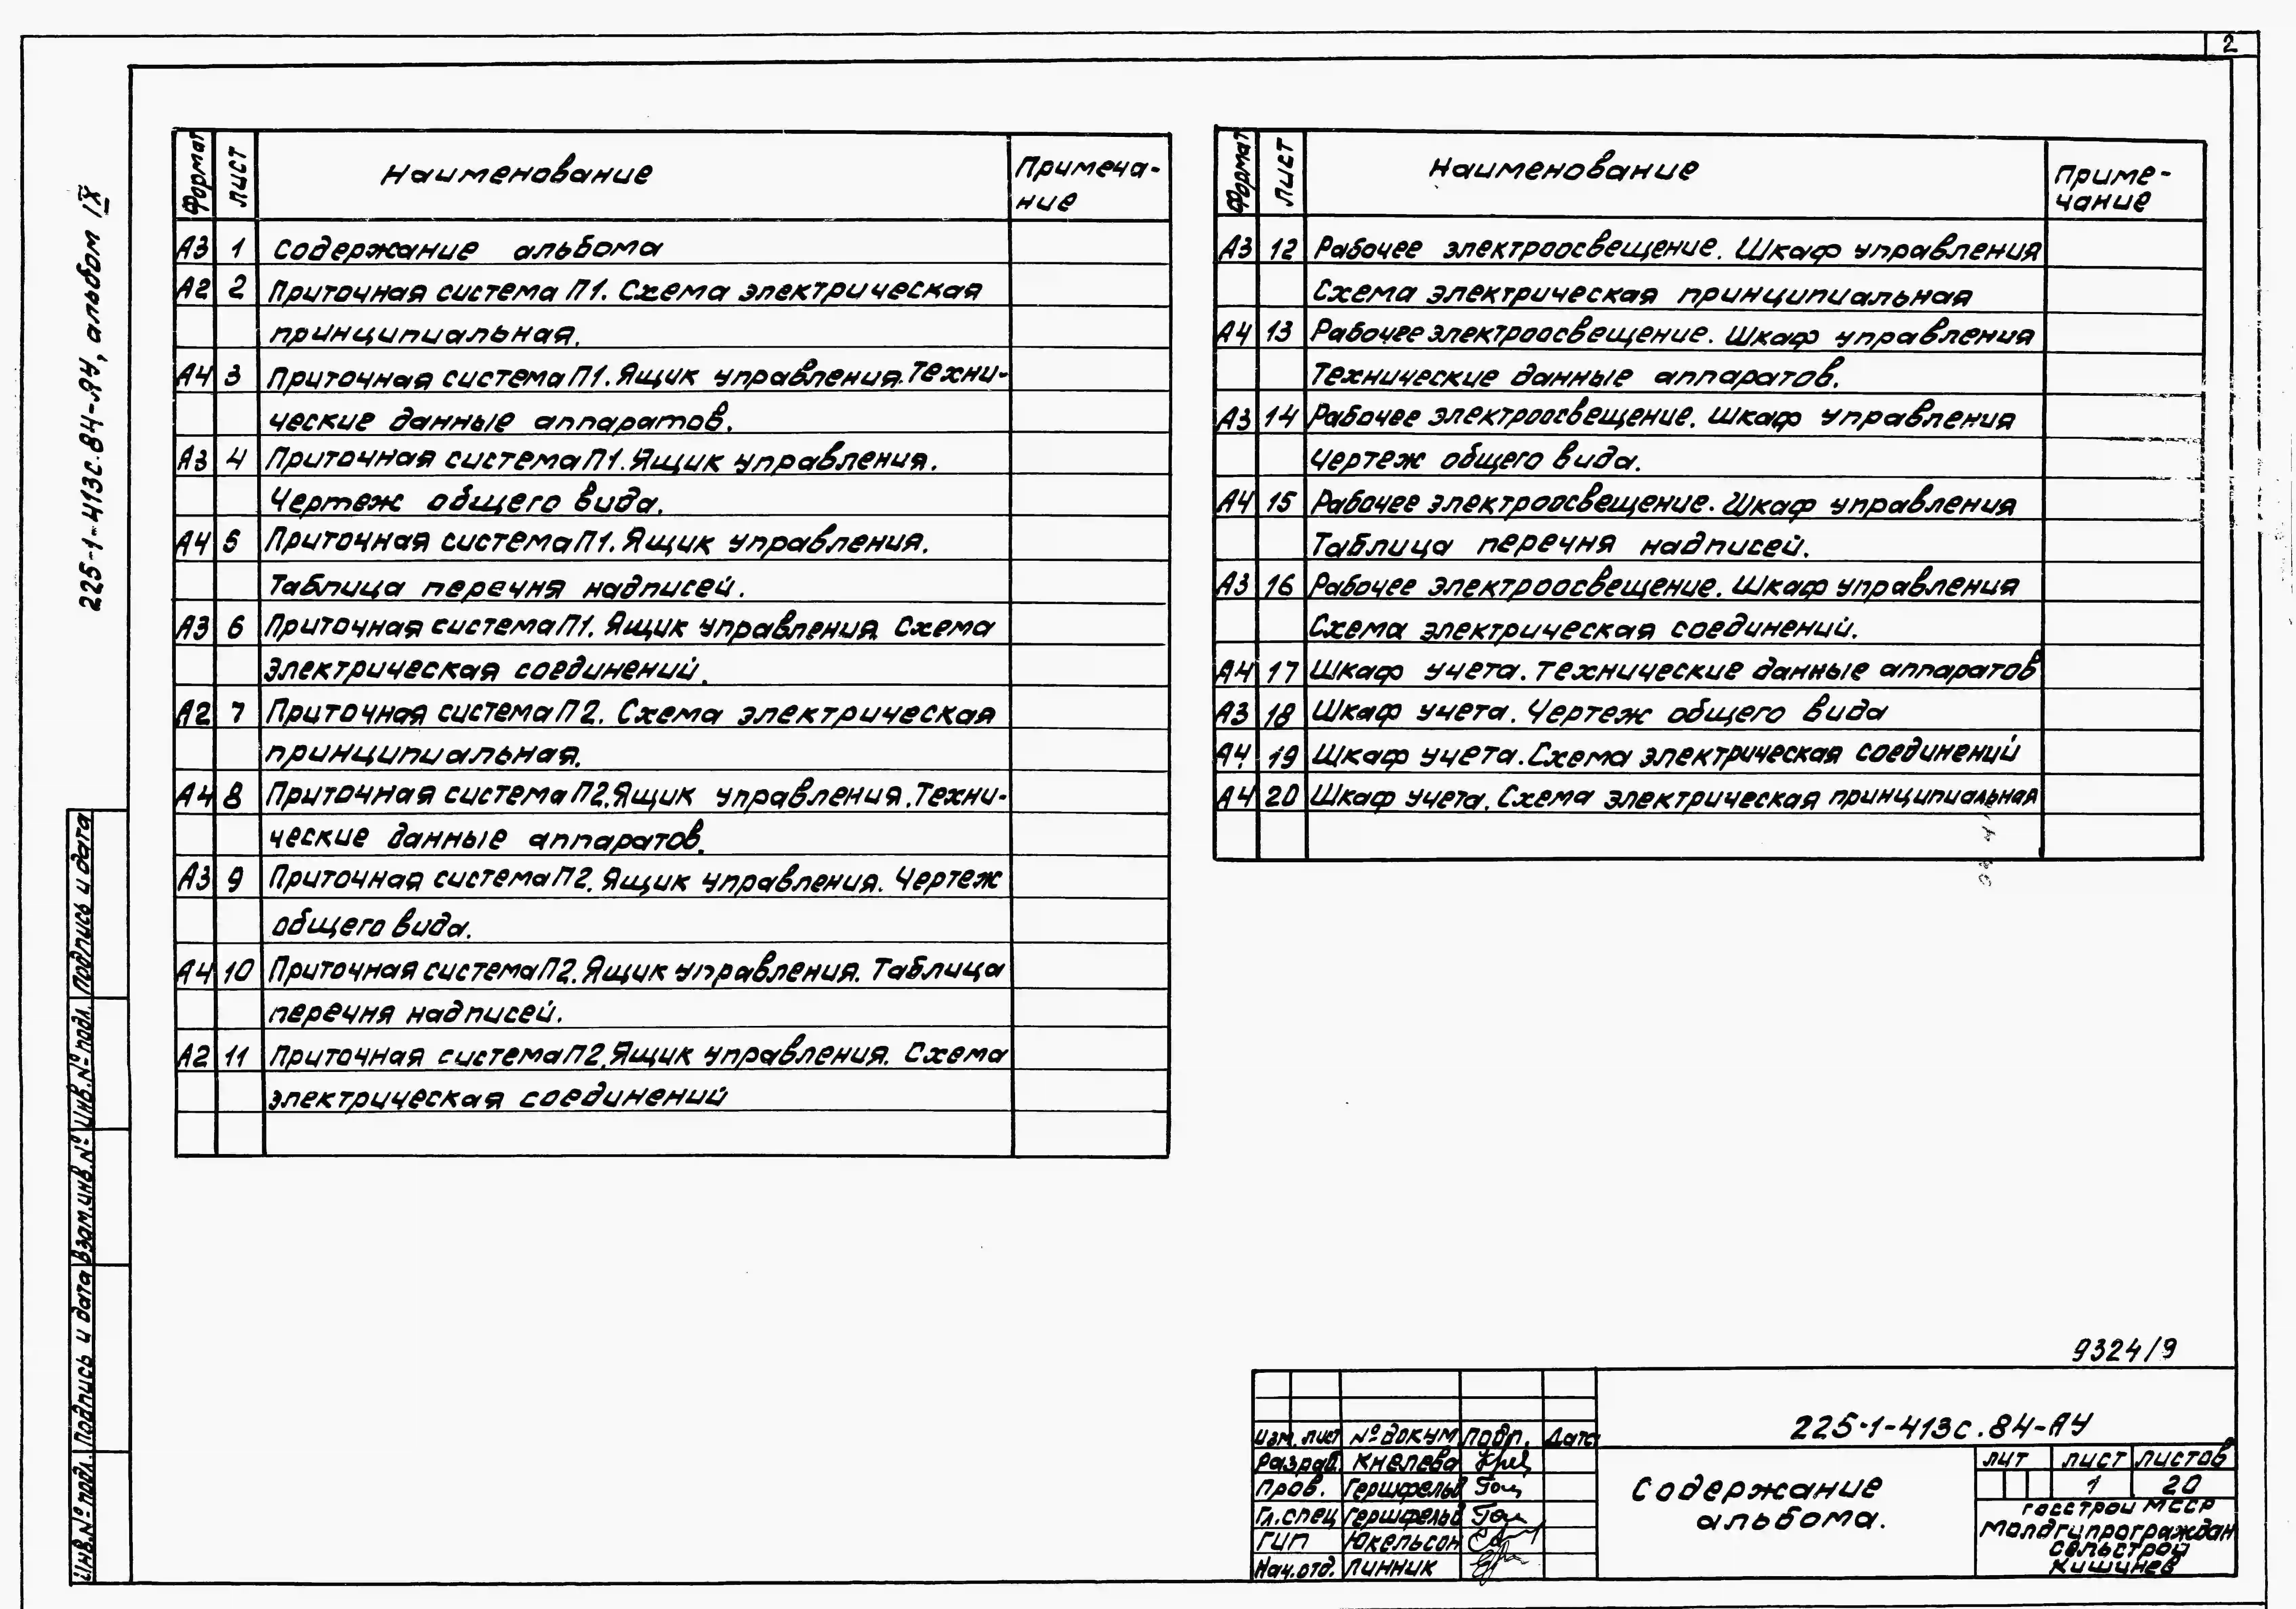 2
225-1-413с.84-АУ, альбом IX
Формат Лист Наименование Примеча-
ние
А3 1 Содержание альбома
А2 2 Приточная система П1. Схема электрическая
принципиальная.
А4 3 Приточная система П1. Ящик управления. Техни-
ческие данные аппаратов.
А3 4 Приточная система П1. Ящик управления.
Чертеж общего вида.
А4 5 Приточная система П1. Ящик управления.
Таблица перечня надписей.
А3 6 Приточная система П1. Ящик управления. Схема
электрическая соединений.
А2 7 Приточная система П2. Схема электрическая
принципиальная.
А4 8 Приточная система П2. Ящик управления. Техни-
ческие данные аппаратов.
А3 9 Приточная система П2. Ящик управления. Чертеж
общего вида.
А4 10 Приточная система П2. Ящик управления. Таблица
перечня надписей.
А2 11 Приточная система П2. Ящик управления. Схема
электрическая соединений
Формат Лист Наименование Приме-
чание
А3 12 Рабочее электроосвещение. Шкаф управления
Схема электрическая принципиальная
А4 13 Рабочее электроосвещение. Шкаф управления
Технические данные аппаратов.
А3 14 Рабочее электроосвещение. Шкаф управления
Чертеж общего вида.
А4 15 Рабочее электроосвещение. Шкаф управления
Таблица перечня надписей.
А3 16 Рабочее электроосвещение. Шкаф управления
Схема электрическая соединений.
А4 17 Шкаф учета. Технические данные аппаратов
А3 18 Шкаф учета. Чертеж общего вида
А4 19 Шкаф учета. Схема электрическая соединений
А4 20 Шкаф учета. Схема электрическая принципиальная
Инв.№ подл. Подпись и дата Взам.инв.№ Инв.№ подл. Подпись и дата
9324/9
225-1-413с.84-АУ
Изм. лист № докум Подп. Дата
Разраб. Кнелева
Пров. Гершфельд
Гл.спец Гершфельд
ГИП Юкельсон
Нач.отд. Линник
Содержание
альбома.
Лит Лист Листов
1 20
Госстрой МССР
Молдгипрограждан
сельстрой
Кишинев